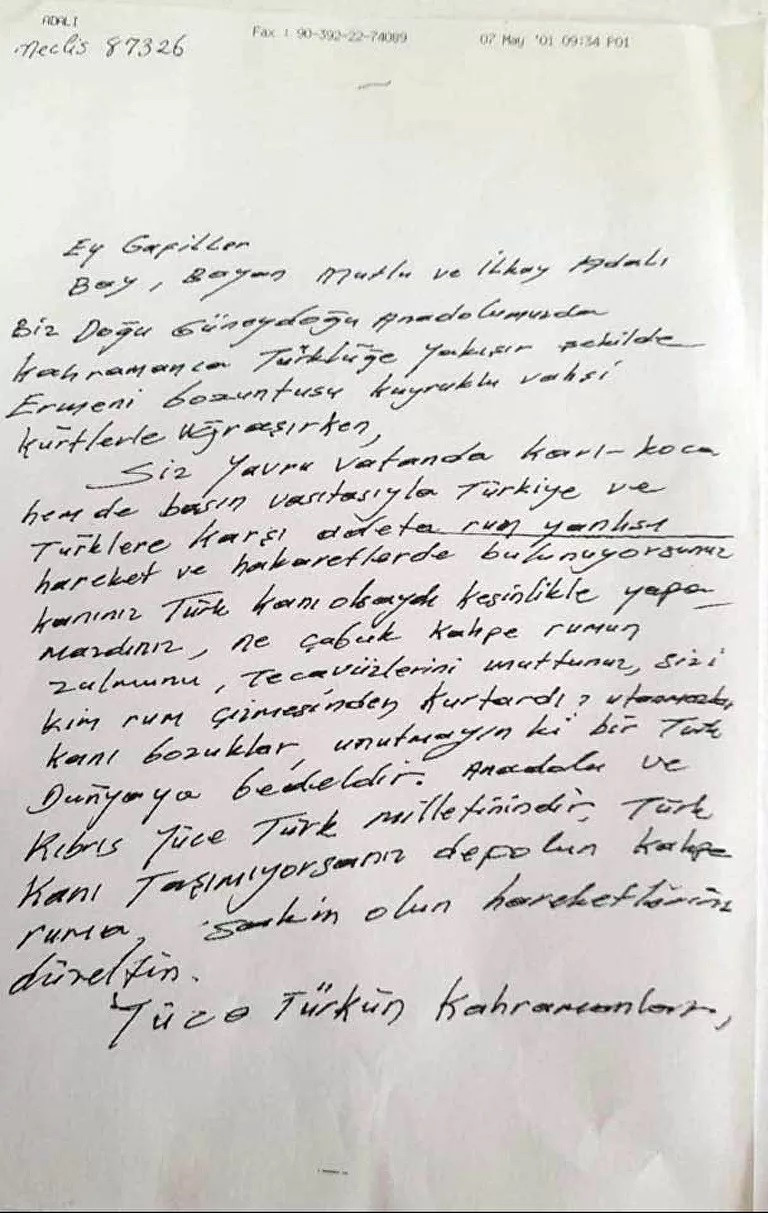 ADALI
Fax : 90-392-22-74089 07 May '01 09:34 P01
Meclis 87326
Ey Gafiller
Bay, Bayan Mutlu ve İlkay Adalı
Biz Doğu Güneydoğu Anadolumuzda
kahramanca Türklüğe yakışır şekilde
Ermeni bozuntusu kuyruklu vahşi
kürtlerle uğraşırken,
Siz Yavru Vatanda karı-koca
hem de basın vasıtasıyla Türkiye ve
Türklere karşı adeta rum yanlısı
hareket ve hakaretlerde bulunuyorsunuz
kanınız Türk kanı olsaydı kesinlikle yapa-
mazdınız, ne çabuk kahpe rumun
zulmunu, Tecavüzlerini unuttunuz, sizi
kim rum çizmesinden kurtardı? utanmazlar
kanı bozuklar, unutmayın ki bir Türk
Dünyaya bedeldir. Anadolu ve
Kıbrıs Yüce Türk milletinindir, Türk
Kanı Taşımıyorsanız depolun kahpe
ruma, Sakin olun hareketlerinizi
düzeltin.
Yüce Türkün Kahramanları,